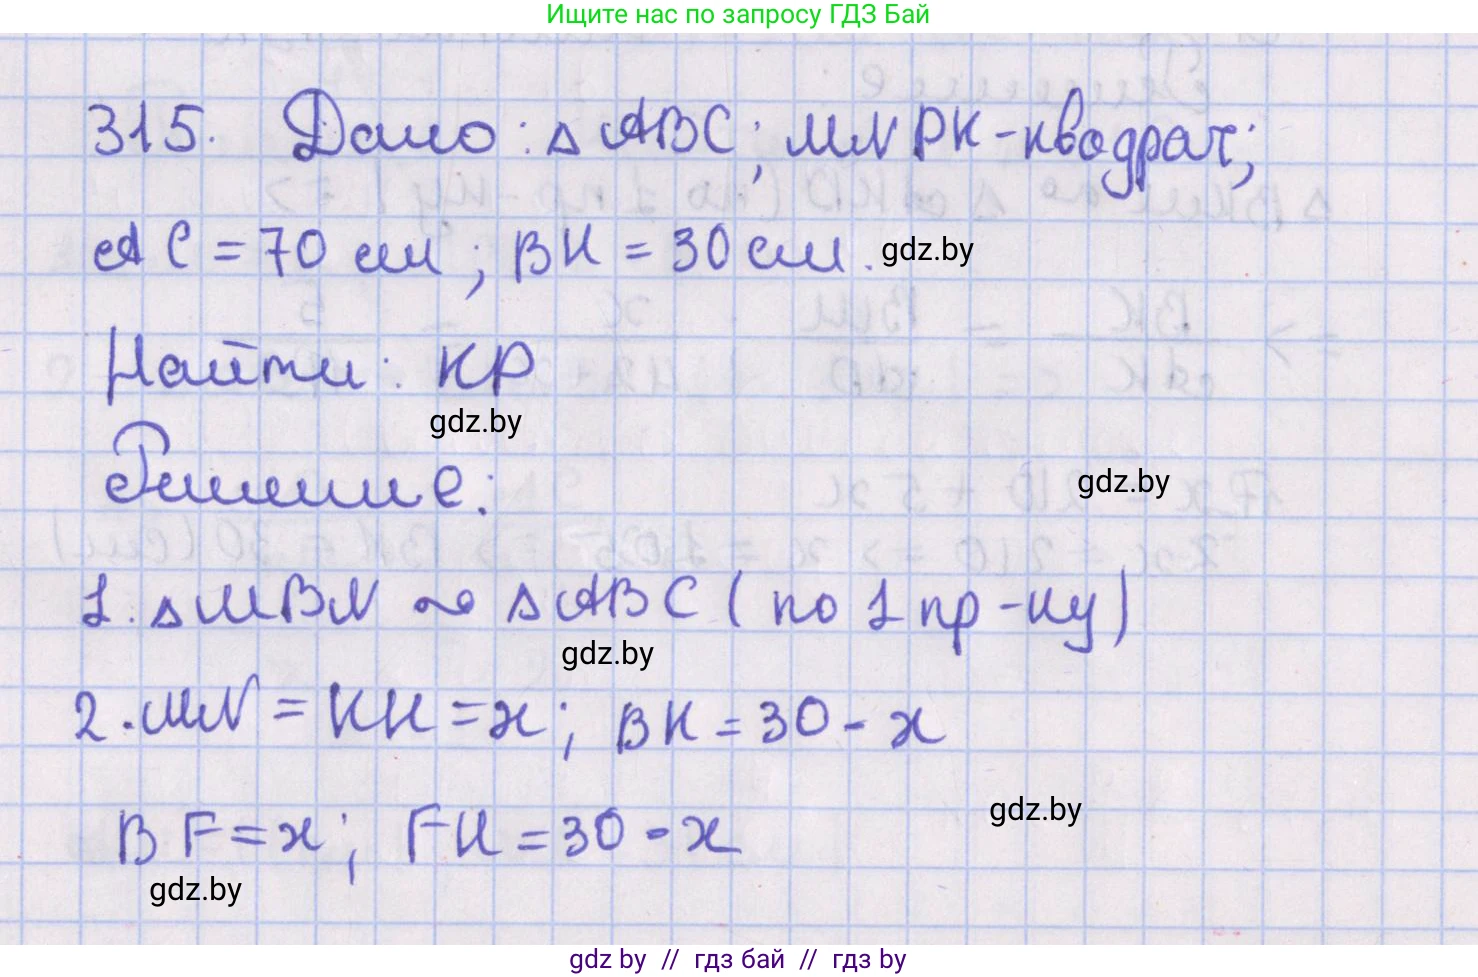 Ищите нас по запросу ГДЗ Бай
315. Дано: △ABC; MNPK-квадрат;
AC = 70 см; BH = 30 см. gdz.by
Найти: KP
gdz.by
Решение: gdz.by
1. △MBN ~ △ABC (по 1 пр-ку)
gdz.by
2. MN = KH = x; BK = 30 - x
gdz.by
BF = x; FH = 30 - x
gdz.by
gdz by // гдз бай // гдз by